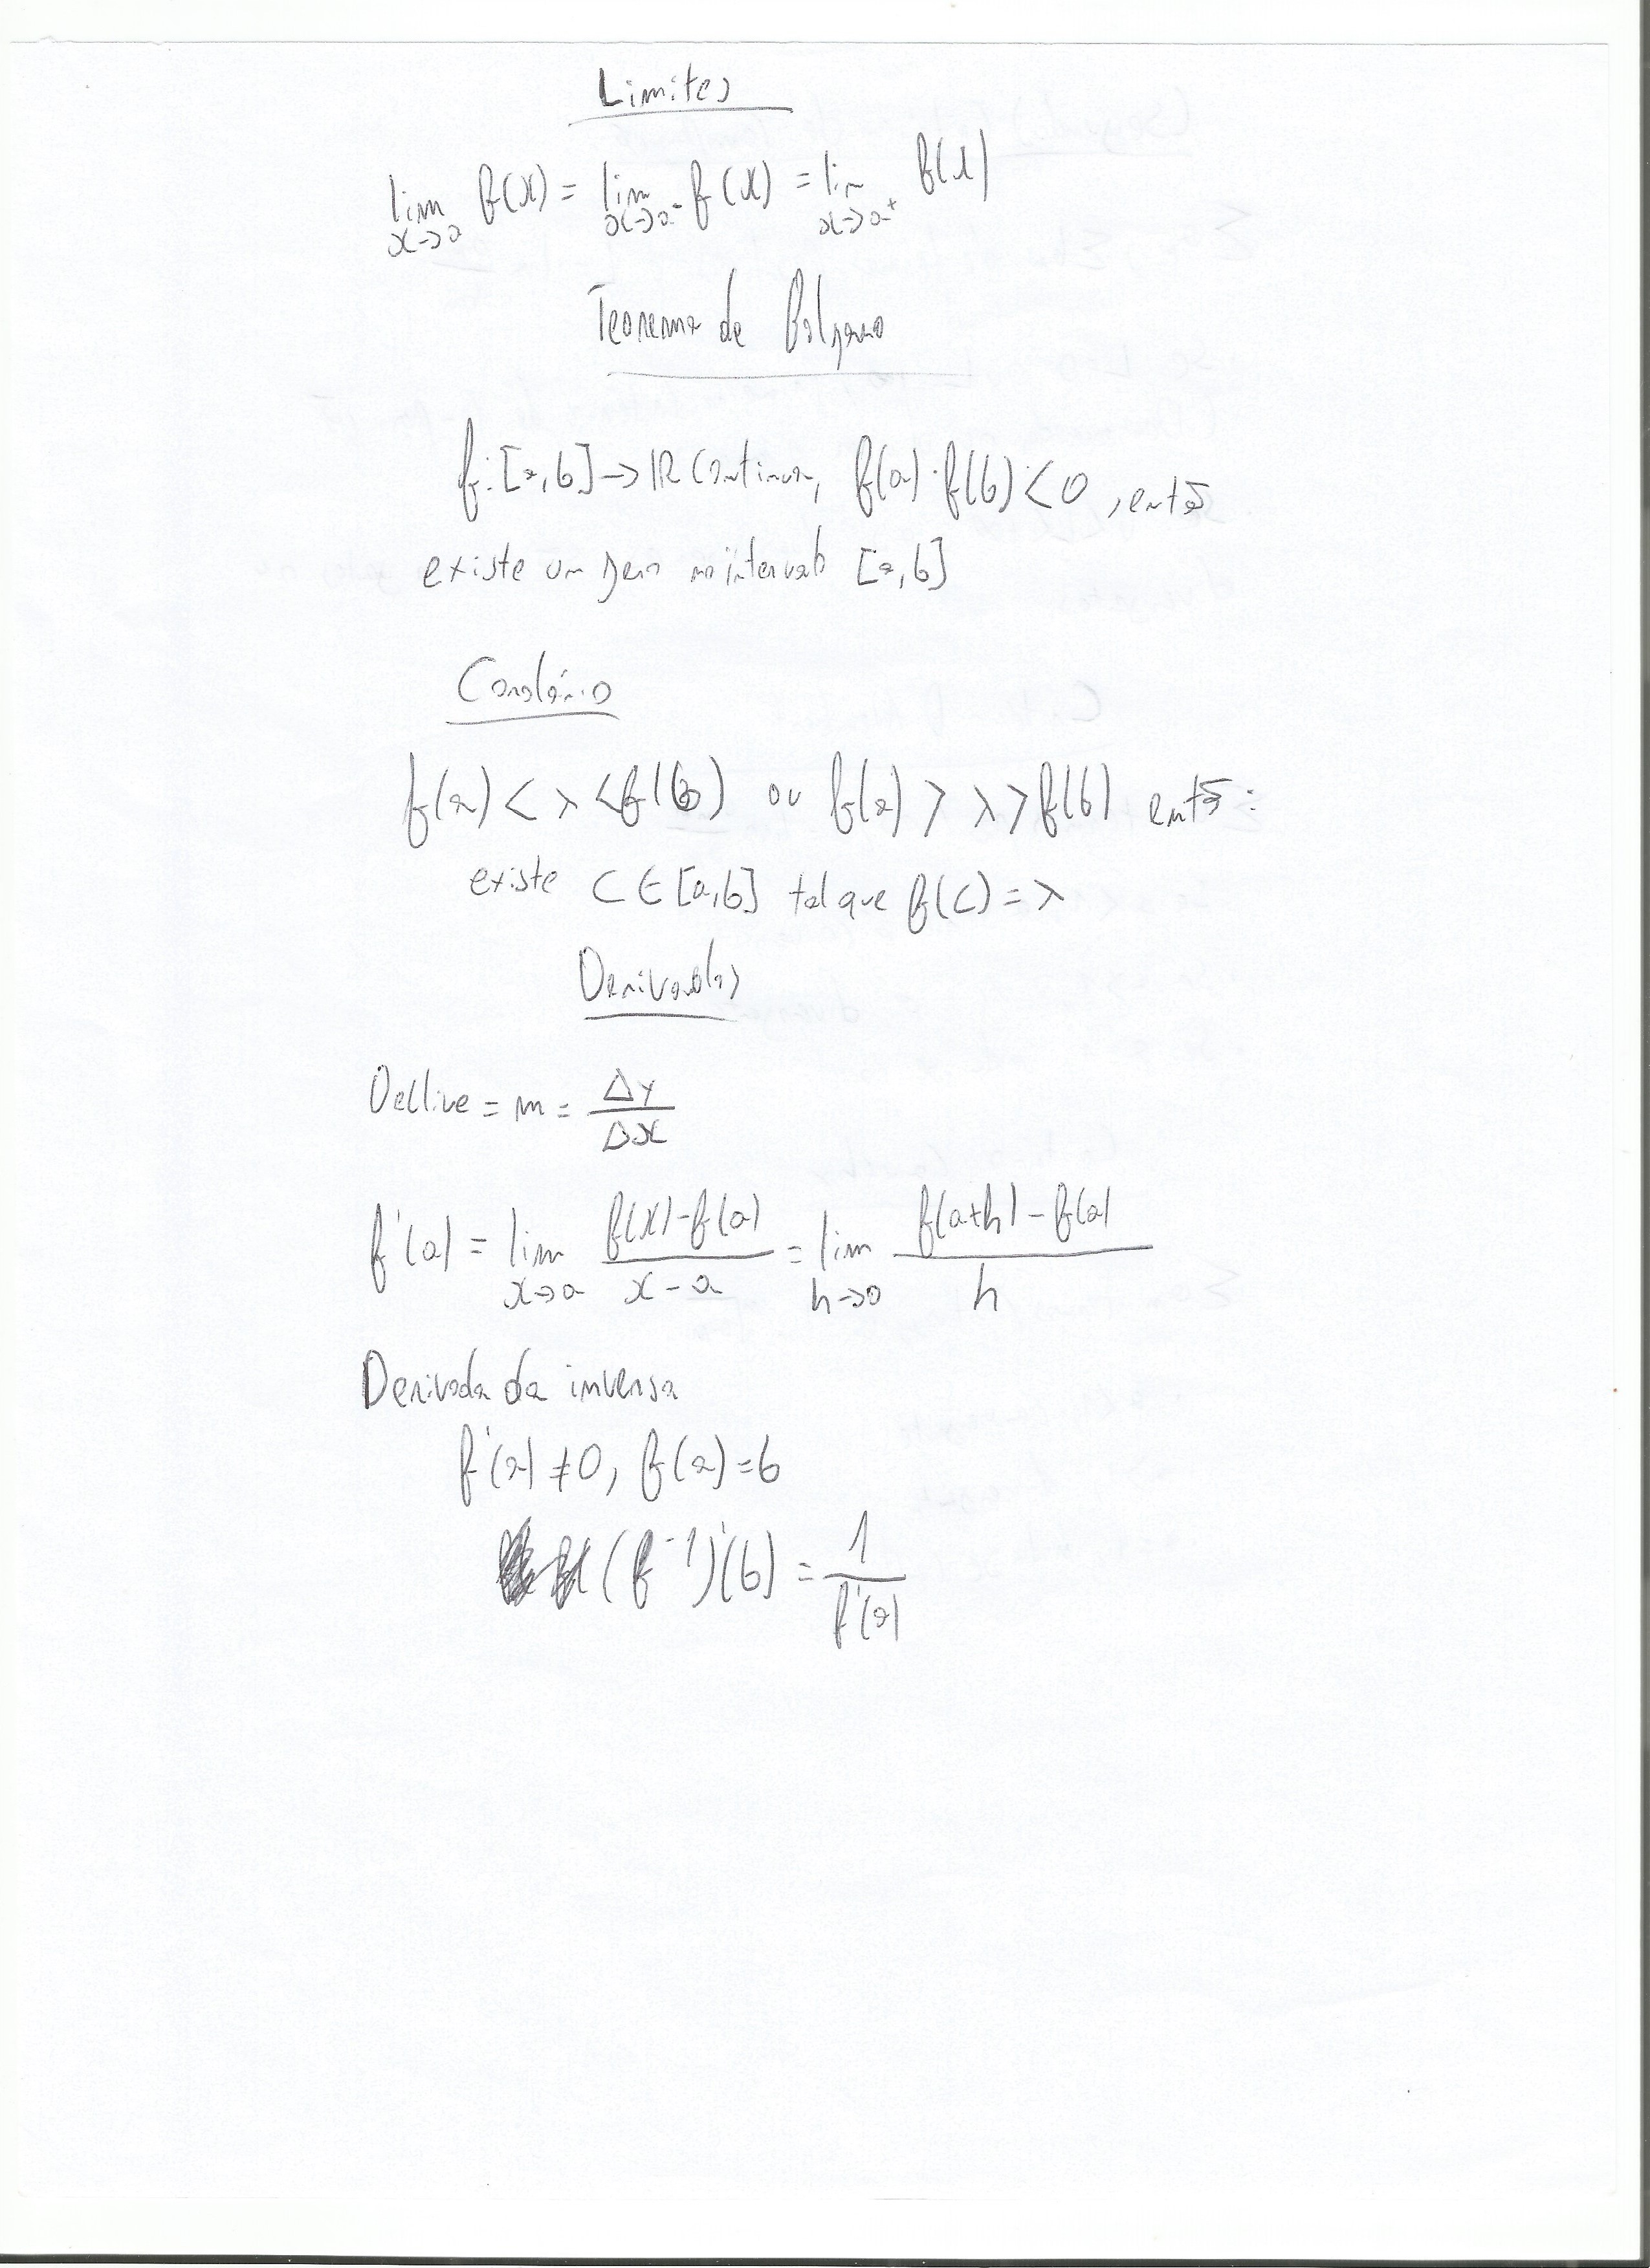 Limites
lim x→a f(x) = lim x→a⁻ f(x) = lim x→a⁺ f(x)
Teorema de Bolzano
f: [a,b] → ℝ continua, f(a)·f(b) < 0, então
existe um zero no intervalo [a,b]
Corolário
f(a) < λ < f(b) ou f(a) > λ > f(b) então:
existe C ∈ [a,b] tal que f(C) = λ
Derivadas
Declive = m = Δy/Δx
f'(a) = lim x→a (f(x) - f(a))/(x - a) = lim h→0 (f(a+h) - f(a))/h
Derivada da inversa
f'(a) ≠ 0, f(a) = b
(f⁻¹)'(b) = 1/f'(a)